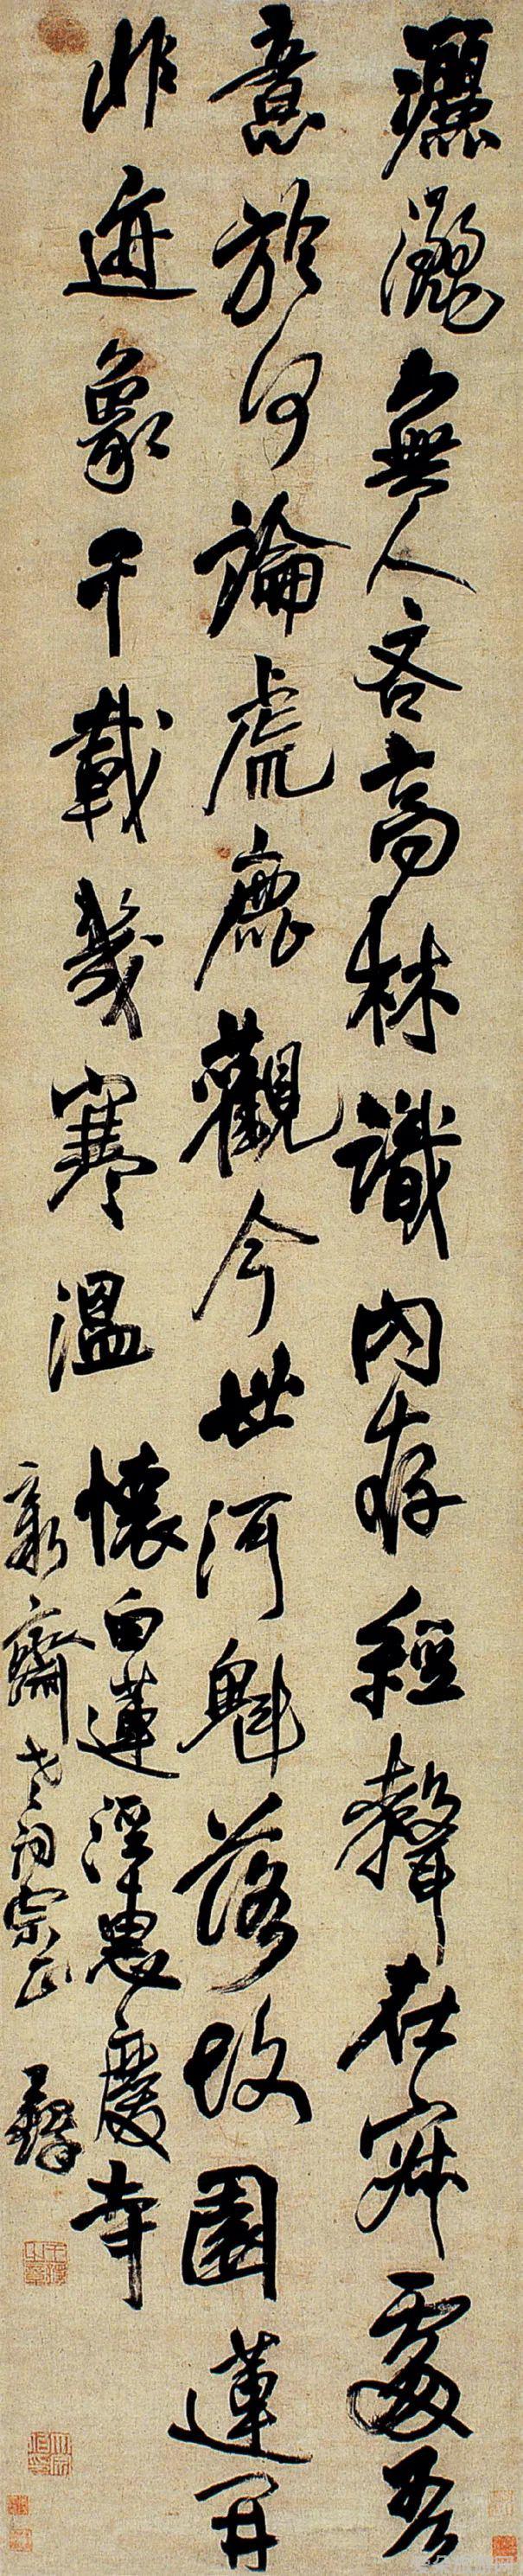 灑灑無人吝高林識內存經聲在寂處吾
意於何論虎鹿觀今世河魁落故園蓮開
非迹象千載幾寒溫 懷白蓮惠慶寺
齋老詞宗正 王鐸